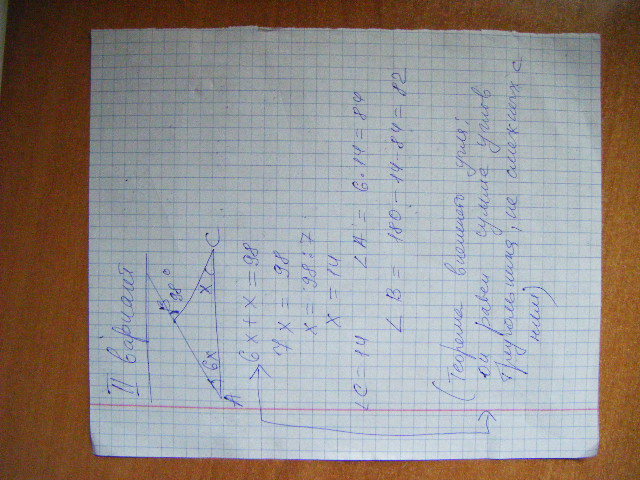 II вариант
B
98°
6x
x
A
C
6x + x = 98
7x = 98
x = 98 : 7
x = 14
∠C = 14 ∠A = 6 · 14 = 84
∠B = 180 - 14 - 84 = 82
(теорема внешнего угла:
он равен сумме углов
треугольника, не смежных с
ним)